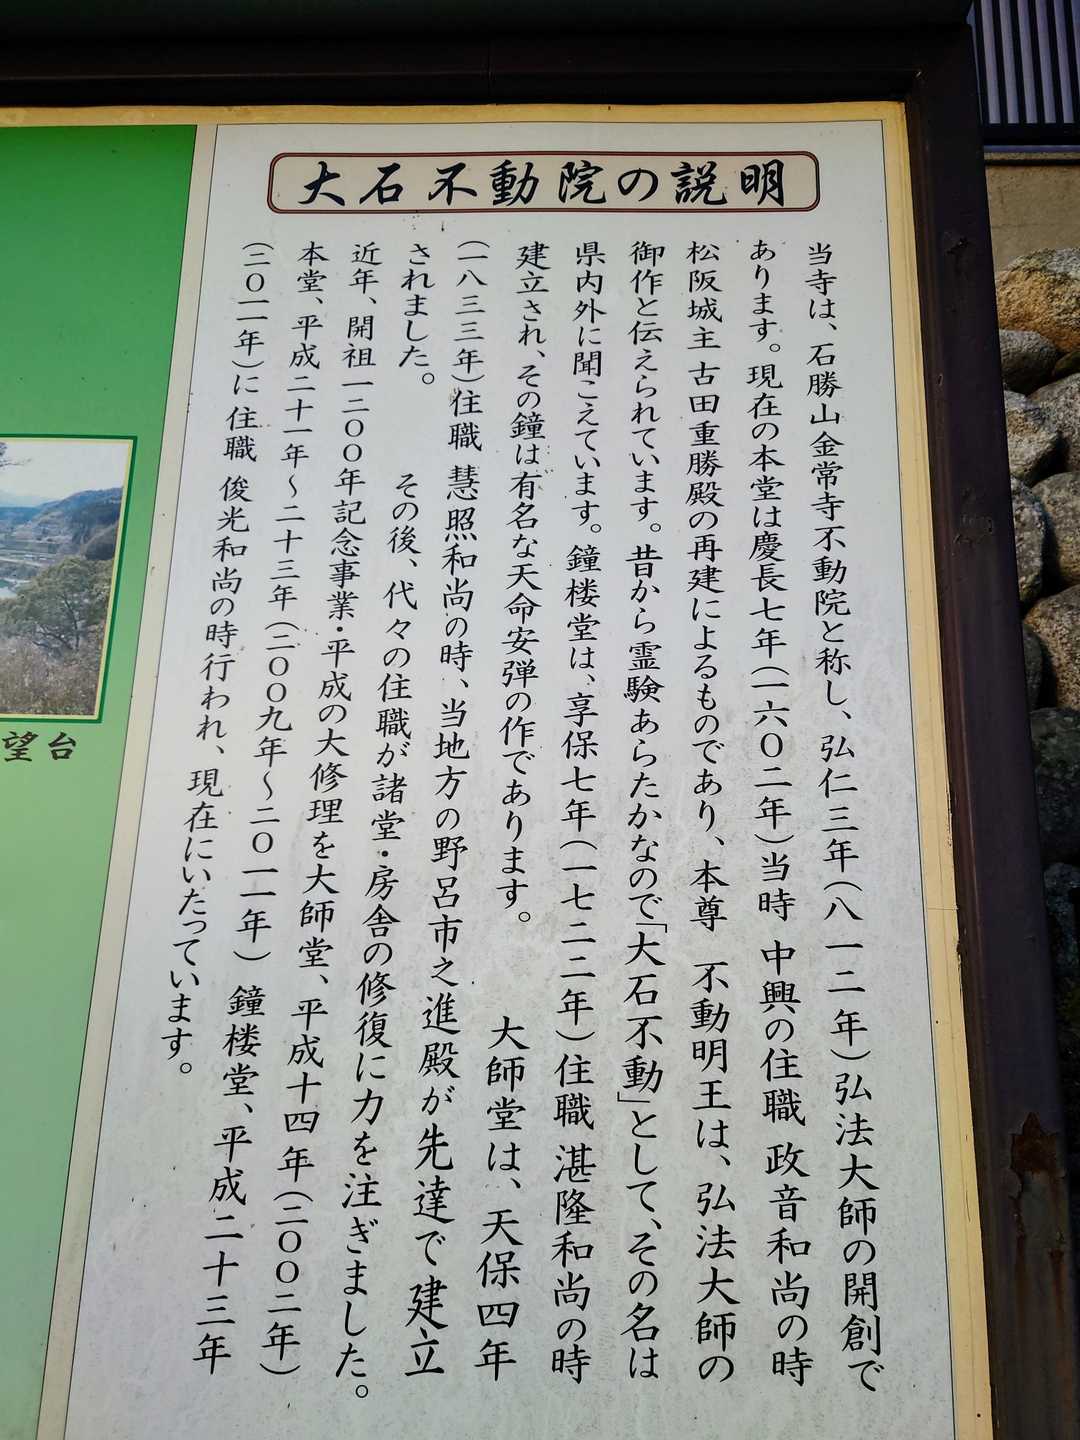 大石不動院の説明
当寺は、石勝山金常寺不動院と称し、弘仁三年(八一二年)弘法大師の開創で
あります。現在の本堂は慶長七年(一六〇二年)当時 中興の住職 政音和尚の時
松阪城主 古田重勝殿の再建によるものであり、本尊 不動明王は、弘法大師の
御作と伝えられています。昔から霊験あらたかなので「大石不動」として、その名は
県内外に聞こえています。鐘楼堂は、享保七年(一七二二年)住職 湛隆和尚の時
建立され、その鐘は有名な天命安弾の作であります。 大師堂は、天保四年
(一八三三年)住職 慧照和尚の時、当地方の野呂市之進殿が先達で建立
されました。 その後、代々の住職が諸堂・房舎の修復に力を注ぎました。
近年、開祖一二〇〇年記念事業・平成の大修理を大師堂、平成十四年(二〇〇二年)
本堂、平成二十一年～二十三年(二〇〇九年～二〇一一年) 鐘楼堂、平成二十三年
(二〇一一年)に 住職 俊光和尚の時行われ、現在にいたっています。
望台